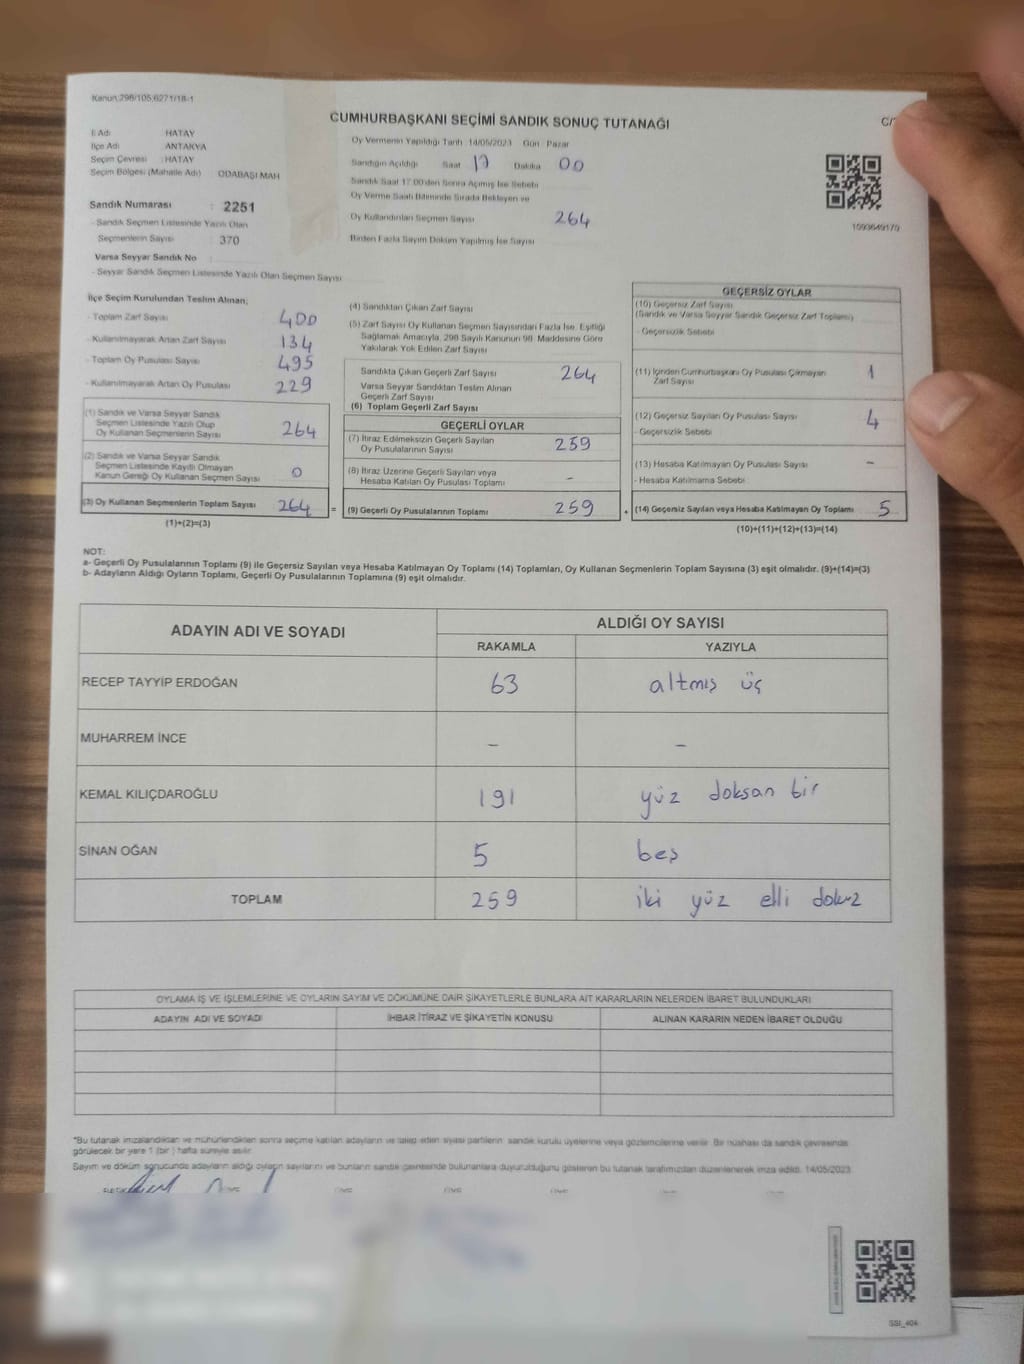 Kanun:298/105;6271/18-1
CUMHURBAŞKANI SEÇİMİ SANDIK SONUÇ TUTANAĞI
İl Adı : HATAY
İlçe Adı : ANTAKYA
Seçim Çevresi : HATAY
Seçim Bölgesi (Mahalle Adı) ODABAŞI MAH
Sandık Numarası : 2251
- Sandık Seçmen Listesinde Yazılı Olan
Seçmenlerin Sayısı : 370
Varsa Seyyar Sandık No :
- Seyyar Sandık Seçmen Listesinde Yazılı Olan Seçmen Sayısı
Oy Vermenin Yapıldığı Tarih 14/05/2023 Gün Pazar
Sandığın Açıldığı Saat 17 Dakika 00
Sandık Saat 17:00'den Sonra Açılmış İse Sebebi
Oy Verme Saati Bitiminde Sırada Bekleyen ve
Oy Kullandırılan Seçmen Sayısı 264
Birden Fazla Sayım Döküm Yapılmış İse Sayısı
1093649170
İlçe Seçim Kurulundan Teslim Alınan;
- Toplam Zarf Sayısı 400
- Kullanılmayarak Artan Zarf Sayısı 134
- Toplam Oy Pusulası Sayısı 495
- Kullanılmayarak Artan Oy Pusulası 229
(1) Sandık ve Varsa Seyyar Sandık
Seçmen Listesinde Yazılı Olup
Oy Kullanan Seçmenlerin Sayısı 264
(2) Sandık ve Varsa Seyyar Sandık
Seçmen Listesinde Kayıtlı Olmayan
Kanun Gereği Oy Kullanan Seçmen Sayısı 0
(3) Oy Kullanan Seçmenlerin Toplam Sayısı 264 =
(1)+(2)=(3)
(4) Sandıktan Çıkan Zarf Sayısı
(5) Zarf Sayısı Oy Kullanan Seçmen Sayısından Fazla İse, Eşitliği
Sağlamak Amacıyla, 298 Sayılı Kanunun 98. Maddesine Göre
Yakılarak Yok Edilen Zarf Sayısı
Sandıkta Çıkan Geçerli Zarf Sayısı 264
Varsa Seyyar Sandıktan Teslim Alınan
Geçerli Zarf Sayısı
(6) Toplam Geçerli Zarf Sayısı
GEÇERLİ OYLAR
(7) İtiraz Edilmeksizin Geçerli Sayılan
Oy Pusulalarının Sayısı 259
(8) İtiraz Üzerine Geçerli Sayılan veya
Hesaba Katılan Oy Pusulası Toplamı -
(9) Geçerli Oy Pusulalarının Toplamı 259 +
GEÇERSİZ OYLAR
(10) Geçersiz Zarf Sayısı
(Sandık ve Varsa Seyyar Sandık Geçersiz Zarf Toplamı)
- Geçersizlik Sebebi
(11) İçinden Cumhurbaşkanı Oy Pusulası Çıkmayan
Zarf Sayısı 1
(12) Geçersiz Sayılan Oy Pusulası Sayısı 4
- Geçersizlik Sebebi
(13) Hesaba Katılmayan Oy Pusulası Sayısı -
- Hesaba Katılmama Sebebi
(14) Geçersiz Sayılan veya Hesaba Katılmayan Oy Toplamı 5
(10)+(11)+(12)+(13)=(14)
NOT:
a- Geçerli Oy Pusulalarının Toplamı (9) ile Geçersiz Sayılan veya Hesaba Katılmayan Oy Toplamı (14) Toplamları, Oy Kullanan Seçmenlerin Toplam Sayısına (3) eşit olmalıdır. (9)+(14)=(3)
b- Adayların Aldığı Oyların Toplamı, Geçerli Oy Pusulalarının Toplamına (9) eşit olmalıdır.
ADAYIN ADI VE SOYADI ALDIĞI OY SAYISI
RAKAMLA YAZIYLA
RECEP TAYYİP ERDOĞAN 63 altmış üç
MUHARREM İNCE - -
KEMAL KILIÇDAROĞLU 191 yüz doksan bir
SİNAN OĞAN 5 beş
TOPLAM 259 iki yüz elli dokuz
OYLAMA İŞ VE İŞLEMLERİNE VE OYLARIN SAYIM VE DÖKÜMÜNE DAİR ŞİKAYETLERLE BUNLARA AİT KARARLARIN NELERDEN İBARET BULUNDUKLARI
ADAYIN ADI VE SOYADI İHBAR İTİRAZ VE ŞİKAYETİN KONUSU ALINAN KARARIN NEDEN İBARET OLDUĞU
*Bu tutanak imzalandıktan ve mühürlendikten sonra seçime katılan adayların ve talep eden siyasi partilerin sandık kurulu üyelerine veya gözlemcilerine verilir. Bir nüshası da sandık çevresinde
görülecek bir yere 1 (bir) hafta süreyle asılır.
Sayım ve döküm sonucunda adayların aldığı oyların sayılarını ve bunların sandık çevresinde bulunanlara duyurulduğunu gösteren bu tutanak tarafımızdan düzenlenerek imza edildi. 14/05/2023
SSI_404